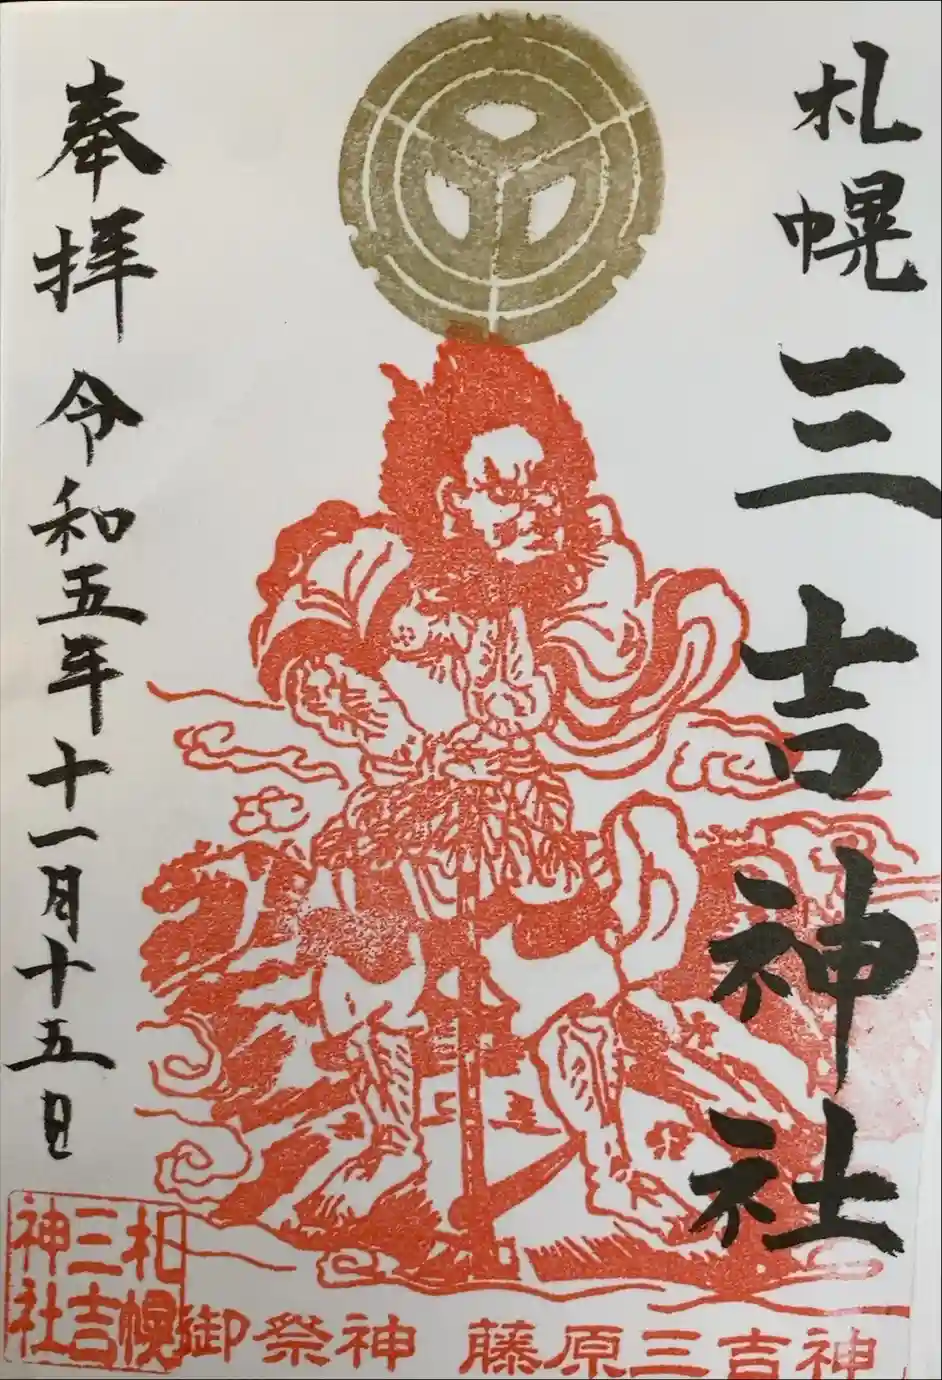 札幌三吉神社
奉拝 令和五年十一月十五日
札幌
三吉
神社
御祭神 藤原三吉神